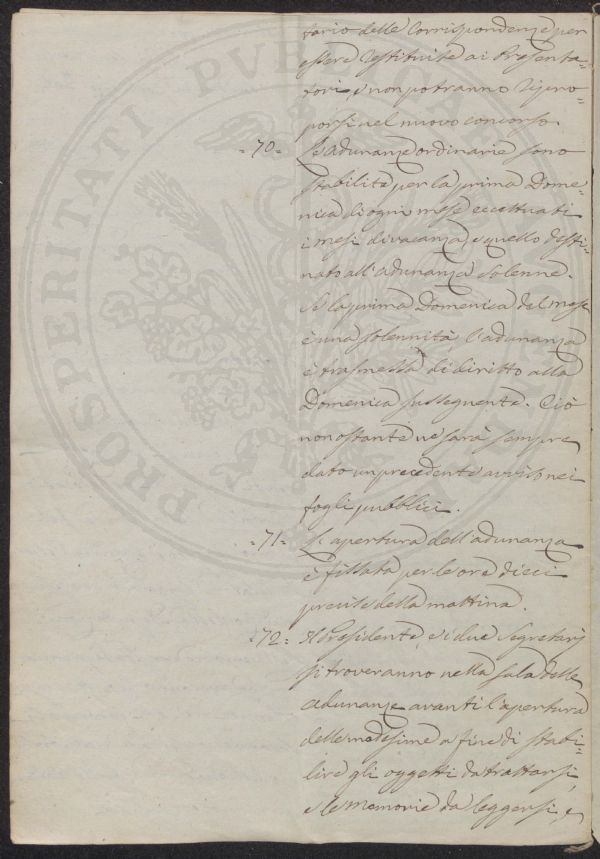 tario delle Corrispondenze per
essere restituite ai Presenta=
tori, e non potranno ripro=
porsi nel nuovo concorso.
=70= Le adunanze ordinarie sono
stabilite per la prima Dome=
nica di ogni mese eccettuati
i mesi di vacanza, e quello desti=
nato all'adunanza solenne.
Se la prima Domenica del mese
è una solennità l'adunanza
è trasmessa di diritto alla
Domenica susseguente. Ciò
non ostante ne sarà sempre
dato un precedente avviso nei
fogli pubblici.
=71= L'apertura dell'adunanza
è fissata per le ore dieci
precise della mattina.
=72= Il Presidente, e i due Segretarj
si troveranno nella sala delle
adunanze avanti l'apertura
delle medesime a fine di stabi=
lire gli oggetti da trattarsi,
e le memorie da leggersi, e
PROSPERITATI PUBLICAE